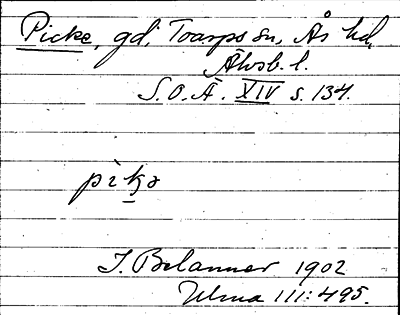 Picke, gd, Toarps sn, Ås hd,
Älvsb. l.
S.O.Ä. XIV s. 134.
pìꜧə
1902
Ulma 111:495.